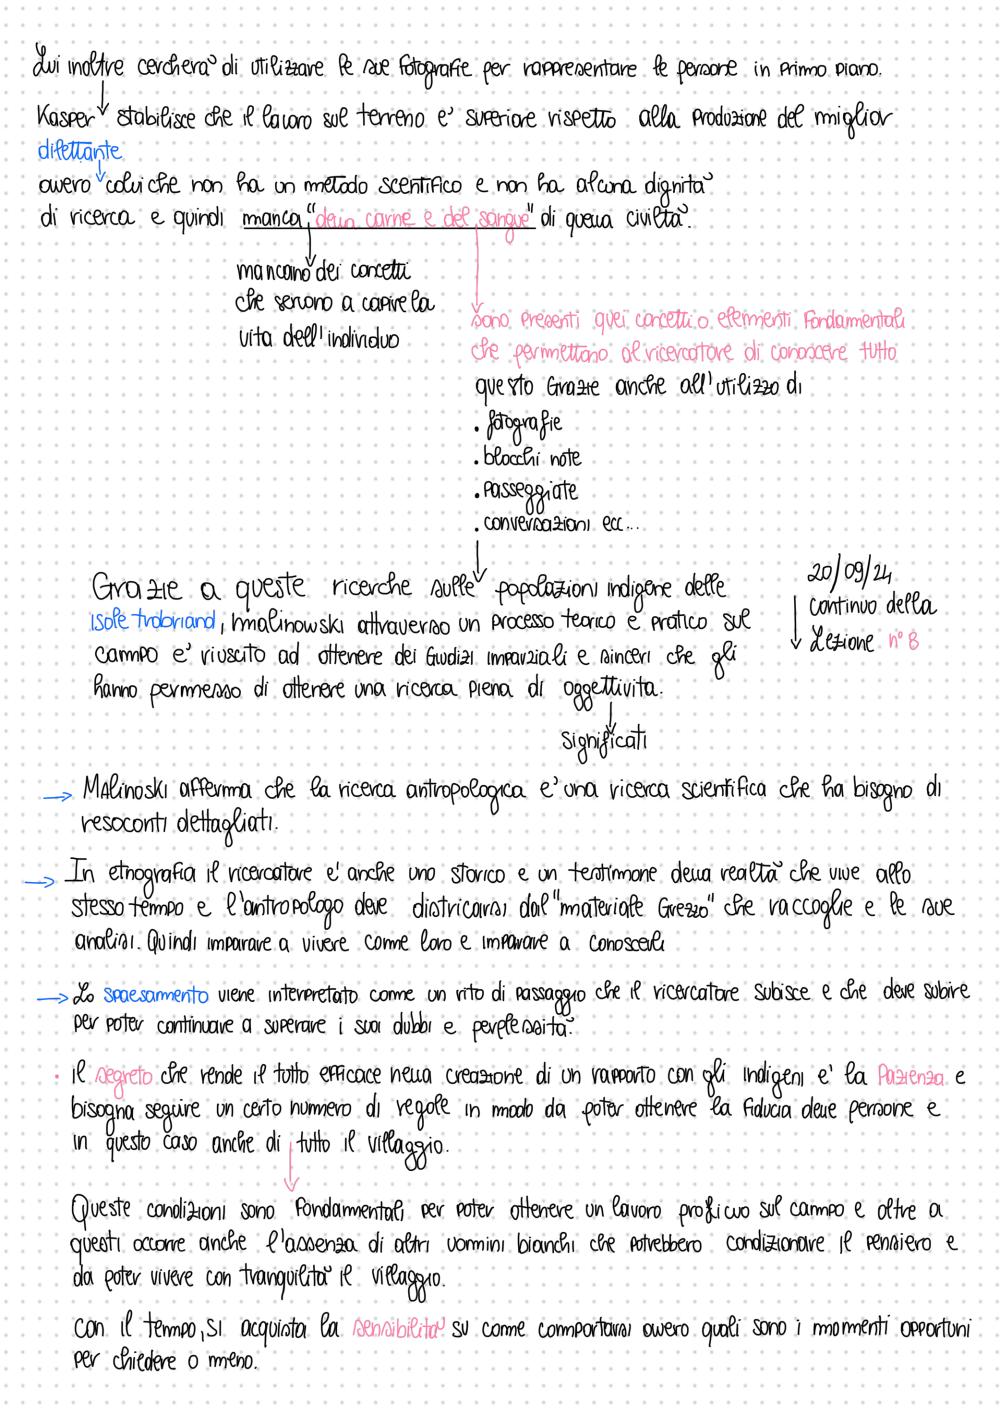 Lui inoltre cercherà di utilizzare le sue fotografie per rappresentare le persone in primo piano.
Kasper stabilisce che il lavoro sul terreno e' superiore rispetto alla produzione del miglior
dilettante
ovvero colui che non ha un metodo scentifico e non ha alcuna dignità
di ricerca e quindi manca "della carne e del sangue" di quella civiltà.
mancano dei concetti
che servono a capire la
vita dell'individuo
sono presenti quei concetti o elementi fondamentali
che permettono al ricercatore di conoscere tutto
questo Grazie anche all'utilizzo di
. fotografie
. blocchi note
. passeggiate
. conversazioni ecc...
Grazie a queste ricerche sulle popolazioni indigene delle
isole trobriand, malinowski attraverso un processo teorico e pratico sul
campo e' riuscito ad ottenere dei Giudizi imparziali e sinceri che gli
hanno permesso di ottenere una ricerca piena di oggettivita.
significati
20/09/24
continuo della
Lezione n° 8
→ Malinoski afferma che la ricerca antropologica e' una ricerca scientifica che ha bisogno di
resoconti dettagliati.
→ In etnografia il ricercatore e' anche uno storico e un testimone della realtà che vive allo
stesso tempo e l'antropologo deve districarsi dal "materiale Grezzo" che raccoglie e le sue
analisi. Quindi imparare a vivere come loro e imparare a conoscerli
→ Lo spaesamento viene interpretato come un rito di passaggio che il ricercatore subisce e che deve subire
per poter continuare a superare i suoi dubbi e perplessità.
· il segreto che rende il tutto efficace nella creazione di un rapporto con gli indigeni e' la Pazienza e
bisogna seguire un certo numero di regole in modo da poter ottenere la fiducia delle persone e
in questo caso anche di tutto il villaggio.
Queste condizioni sono fondamentali per poter ottenere un lavoro proficuo sul campo e oltre a
questi occorre anche l'assenza di altri uomini bianchi che potrebbero condizionare il pensiero e
da poter vivere con tranquilità il villaggio.
con il tempo, si acquista la sensibilità su come comportarsi ovvero quali sono i momenti opportuni
per chiedere o meno.